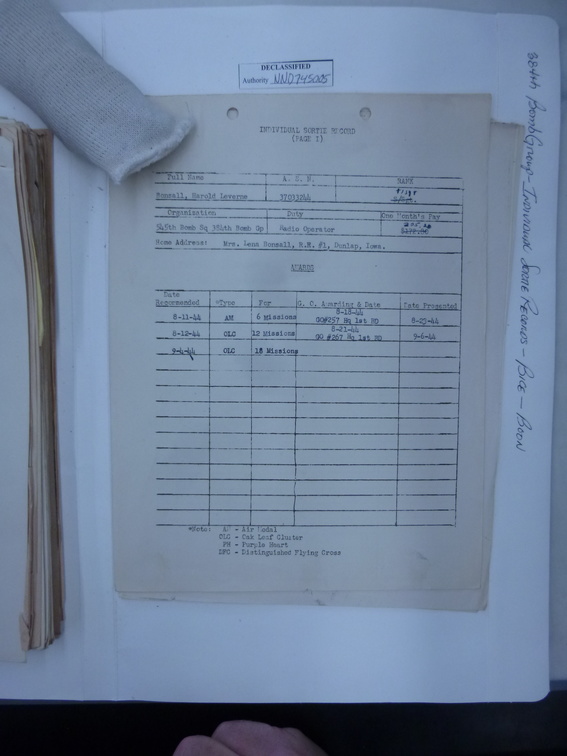 DECLASSIFIED
Authority NND745005
384th Bomb Group - Individual Sortie Records - Bice - Boon
INDIVIDUAL SORTIE RECORD
(PAGE I)
Full Name A. S. N. RANK
Bonsall, Harold Laverne 37033244
Organization Duty One Month's Pay
545th Bomb Sq 384th Bomb Gp Radio Operator
Home Address: Mrs. Lena Bonsall, R.R. #1, Dunlap, Iowa.
AWARDS
Date
Recommended *Type For G. O. Awarding & Date Date Presented
8-11-44 AM 6 Missions 8-18-44
GO#257 Hq 1st BD 8-25-44
8-12-44 OLC 12 Missions 8-21-44
GO #267 Hq 1st BD 9-6-44
9-4-44 OLC 18 Missions
*Note: AM - Air Medal
OLC - Oak Leaf Cluster
PH - Purple Heart
DFC - Distinguished Flying Cross